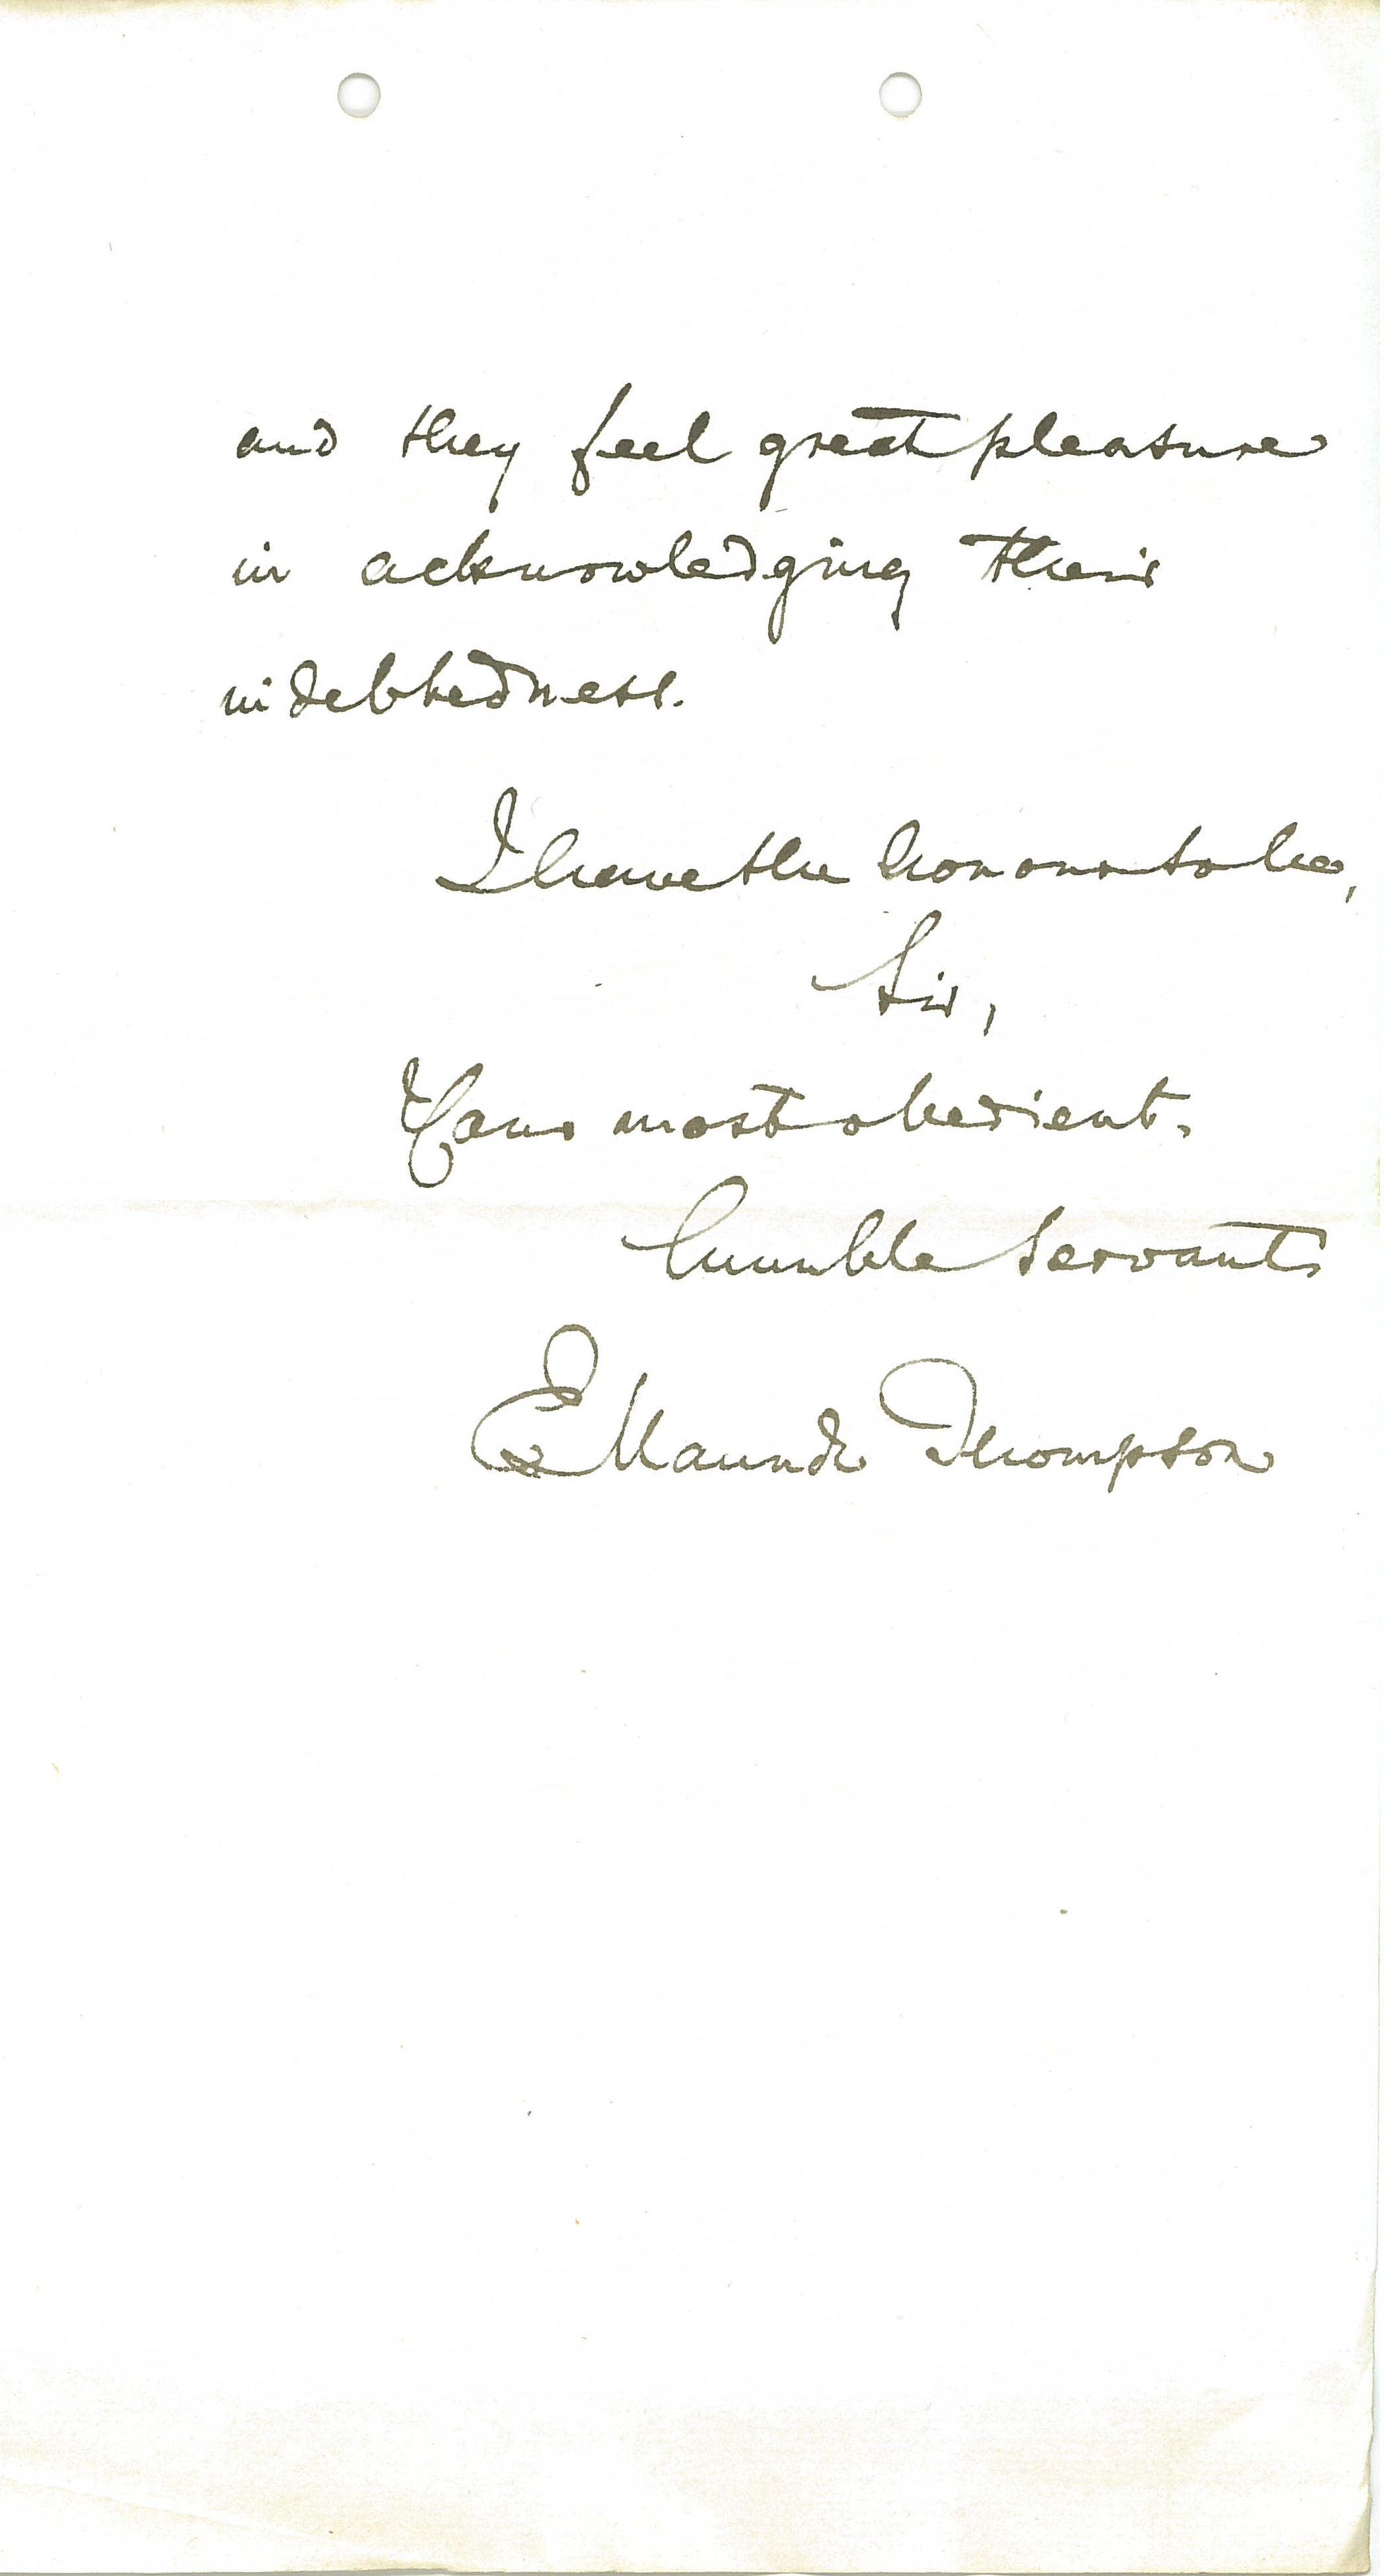 and they feel great pleasure
in acknowledging their
indebtedness.
I have the honour to be,
Sir,
Your most obedient,
humble servant
E Maunde Thompson